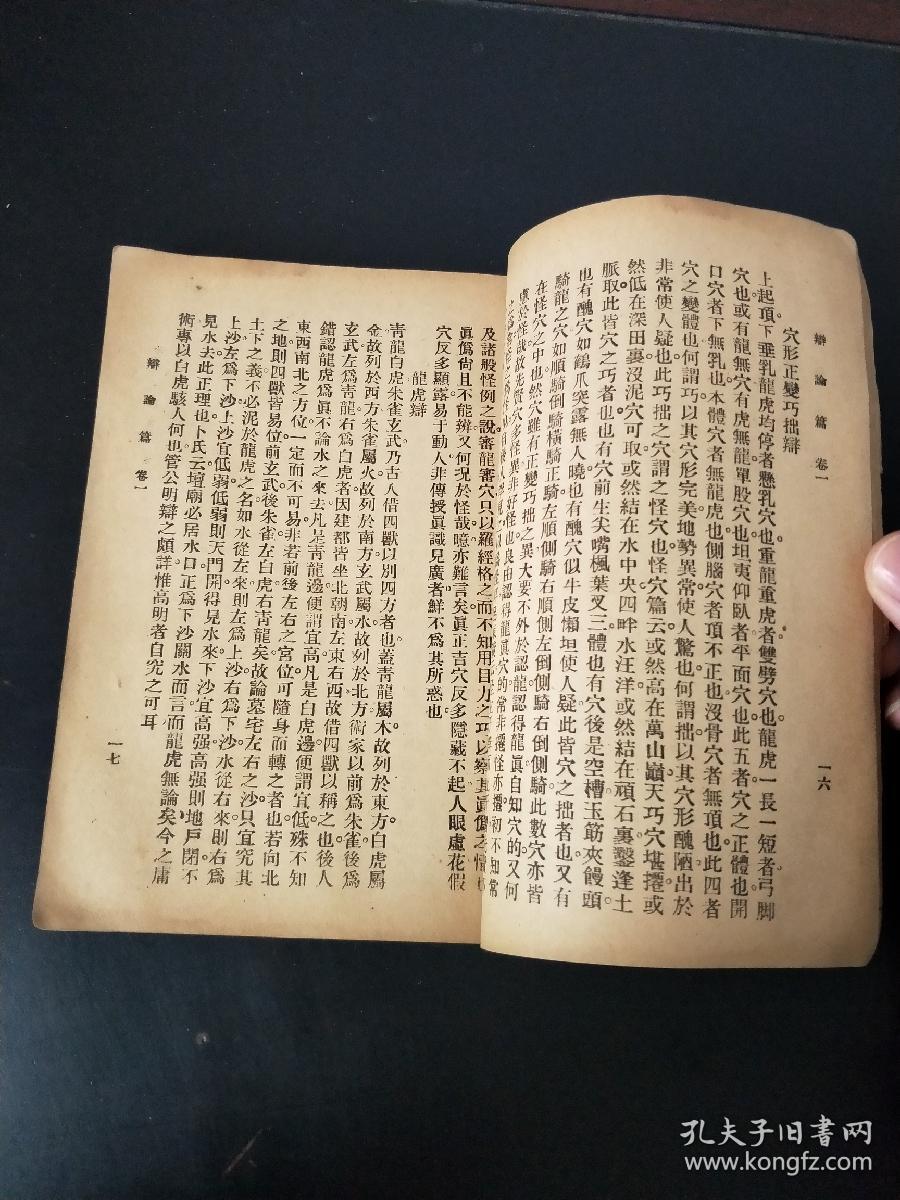 辯論篇 卷一
一六
穴形正變巧拙辯
上起頂下垂乳龍虎均停者懸乳穴也重龍重虎者雙劈穴也龍虎一長一短者弓脚
穴也或有龍無穴有虎無龍單股穴也坦夷仰臥者平面穴也此五者穴之正體也開
口穴者下無乳也本體穴者無龍虎也側腦穴者頂不正也沒骨穴者無頂也此四者
穴之變體也何謂巧以其穴形完美地勢異常使人驚也何謂拙以其穴形醜陋出於
非常使人疑也此巧拙之穴謂之怪穴也怪穴篇云或然高在萬山巔天巧穴堪遷或
然低在深田裏沒泥穴可取或然結在水中央四畔水汪洋或然結在頑石裏鑿逢土
脈取此皆穴之巧者也也有穴前生尖嘴楓葉叉三體也有穴後是空槽玉筯夾饅頭
也有醜穴如鶴爪突露無人曉也有醜穴似牛皮懶坦使人疑此皆穴之拙者也又有
騎龍之穴如順騎倒騎橫騎正騎左順側騎右順側左倒側騎右倒側騎此數穴亦皆
在怪穴之中也然穴雖有正變巧拙之異大要不外於認龍認得龍眞自知穴的又何
慮於怪哉故先賢穴多怪異非好怪也良由認得龍眞穴的常非遷怪亦遷初不知常
及諸般怪例之說審龍審穴只以羅經格之而不知用目力之巧以察其眞僞之情
眞僞尙且不能辨又何況於怪哉噫亦難言矣眞正吉穴反多隱藏不起人眼慮花假
穴反多顯露易于動人非傳授眞識見廣者鮮不爲其所惑也
龍虎辯
靑龍白虎朱雀玄武乃古人借四獸以別四方者也蓋靑龍屬木故列於東方白虎屬
金故列於西方朱雀屬火故列於南方玄武屬水故列於北方術家以前爲朱雀後爲
玄武左爲靑龍右爲白虎者因建都皆坐北朝南左東右西故借四獸以稱之也後人
錯認龍虎爲眞不論水之來去凡是靑龍邊便謂宜高凡是白虎邊便謂宜低殊不知
東西南北之方位一定而不可易非若前後左右之宮位可隨身而轉之者也若向北
之地則四獸皆易位前玄武後朱雀左白虎右靑龍矣故論墓宅左右之沙只宜究其
上下之義不必泥於龍虎之名如水從左來則左爲上沙右爲下沙水從右來則右爲
上沙左爲下沙上沙宜低弱低弱則天門開得見水來下沙宜高强高强則地戸閉不
見水去此正理也卜氏云壇廟必居水口正爲下沙關水而言而龍虎無論矣今之庸
術專以白虎駭人何也管公明辯之頗詳惟高明者自究之可耳
辯論篇 卷一
一七
孔夫子旧书网
www.kongfz.com